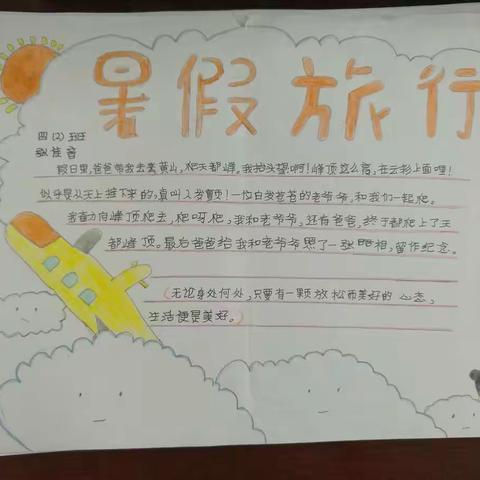 暑假旅行
四(2)班
张佳音
假日里,爸爸带我去黄山,爬天都峰,我抬头望啊!峰顶这么高,在云彩上面哩!
似乎是从天上挂下来的,真叫人发颤!一位白发苍苍的老爷爷,和我们一起爬。
我奋力向峰顶爬去,爬呀爬,我和老爷爷,还有爸爸,终于都爬上了天
都峰顶。最后爸爸给我和老爷爷照了一张照相,留作纪念。
(无论身处何处,只要有一颗放松而美好的心态,
生活便是美好。)